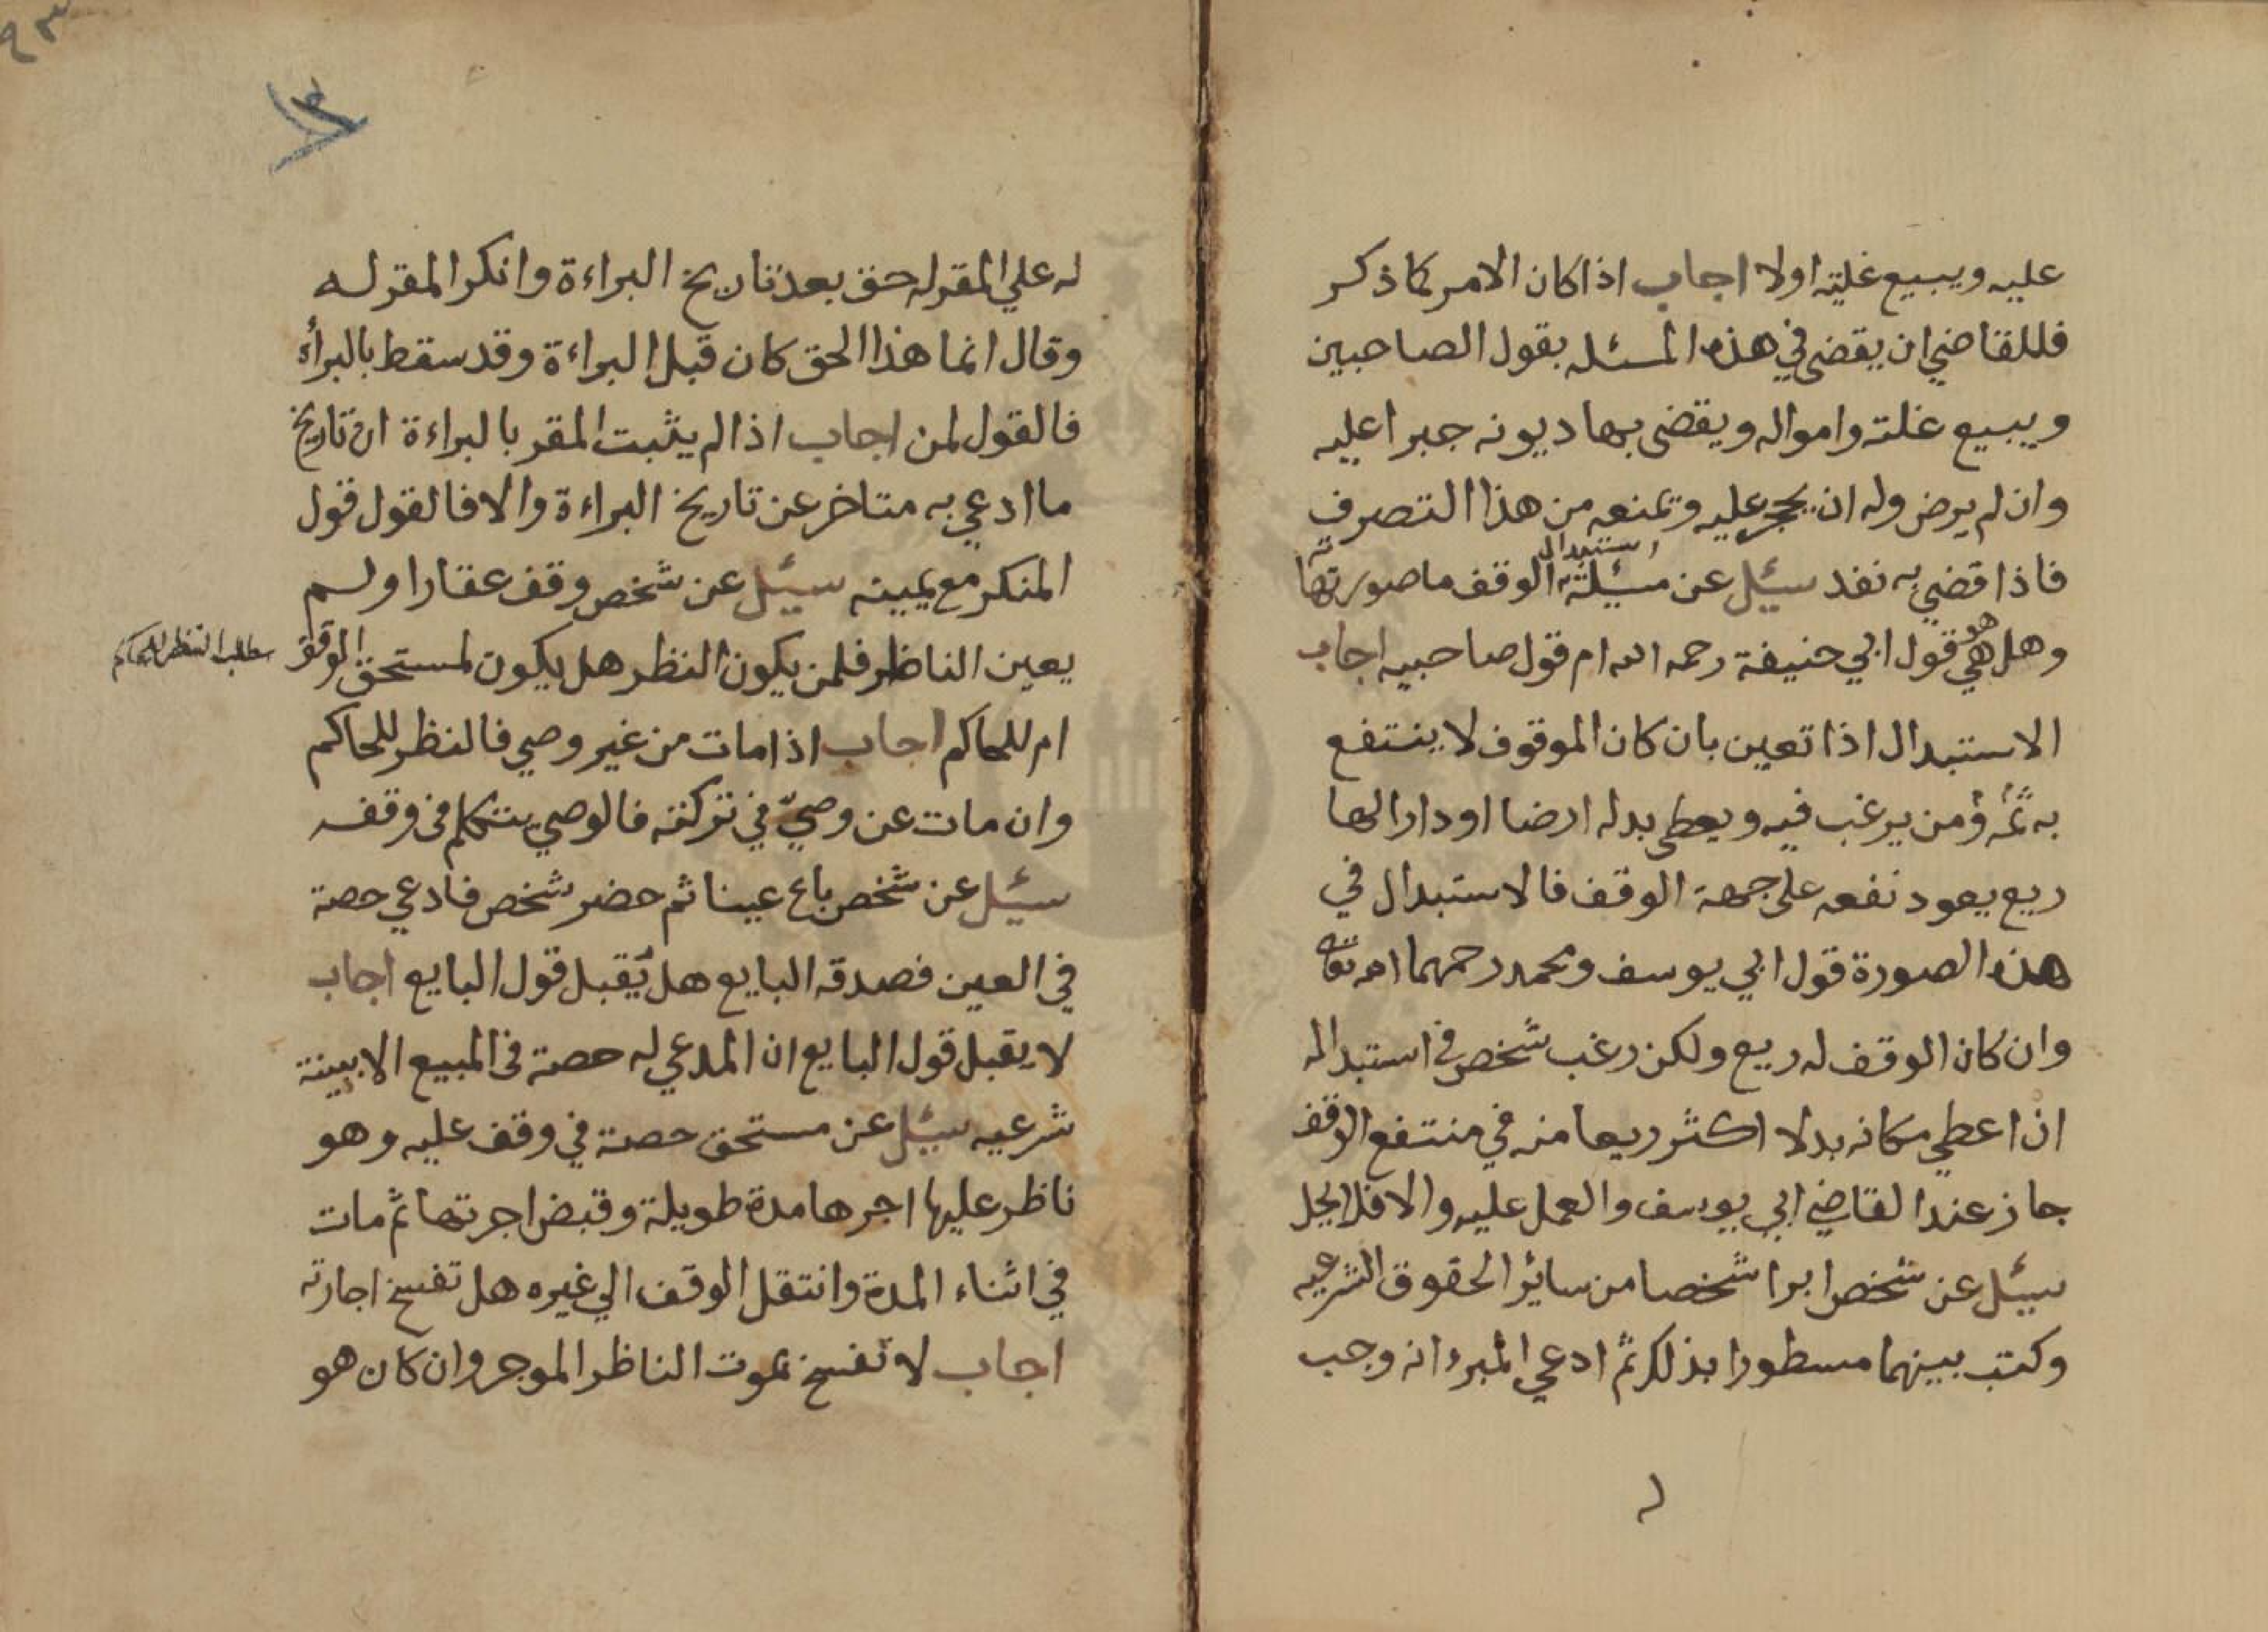 عليه ويبيع غلته اولا اجاب اذا كان الامر كما ذكر
فللقاضي ان يقضى في هذه المسئله بقول الصاحبين
ويبيع غلته وامواله ويقضى بها ديونه جبرا عليه
وان لم يرض وله ان يحجر عليه وتمنعه من هذا التصرف
فاذا قضي به نفد سيئل عن مسيئلة استبدال الوقف ما صورتها
وهل هي هو قول ابي حنيفة رحمه الله ام قول صاحبيه اجاب
الاستبدال اذا تعين بان كان الموقوف لا ينتفع
به ثمه ومن يرغب فيه ويعطى بدله ارضا او دارا لها
ريع يعود نفعه على جهة الوقف فالاستبدال في
هذه الصورة قول ابي يوسف ومحمد رحمهما الله تعا
وان كان الوقف له ريع ولكن رغب شخص في استبداله
ان اعطي مكانه بدلا اكثر ريعا منه في منتفع الوقف
جاز عند القاضي ابي يوسف والعمل عليه والا فلا يجل
سيئل عن شخص ابرا شخصا من سائر الحقوق الشرعيه
وكتب بينهما مسطورا بذلك ثم ادعي المبرء انه وجب
له
٩٣
له علي المقر له حق بعد تاريخ البراءة وانكر المقر له
وقال انما هذا الحق كان قبل البراءة وقد سقط بالبرأة
فالقول لمن اجاب اذا لم يثبت المقر بالبراءة ان تاريخ
ما ادعي به متاخر عن تاريخ البراءة والا فالقول قول
المنكر مع يمينه سيئل عن شخص وقف عقارا ولم
يعين الناظر فلمن يكون النظر هل يكون لمستحق الوقف
مطلب النظر للحاكم
ام للحاكم اجاب اذا مات من غير وصي فالنظر للحاكم
وان مات عن وصيّ في تركته فالوصي يتكلم في وقفه
سيئل عن شخص باع عينا ثم حضر شخص فادعي حصة
في العين فصدقه البايع هل يقبل قول البايع اجاب
لا يقبل قول البايع ان المدعي له حصة في المبيع الا ببينة
شرعيه سيئل عن مستحق حصة في وقف عليه وهو
ناظر عليها اجرها مدة طويلة وقبض اجرتها ثم مات
في اثناء المدة وانتقل الوقف الي غيره هل تفسخ اجارته
اجاب لا تفسخ بموت الناظر الموجر وان كان هو